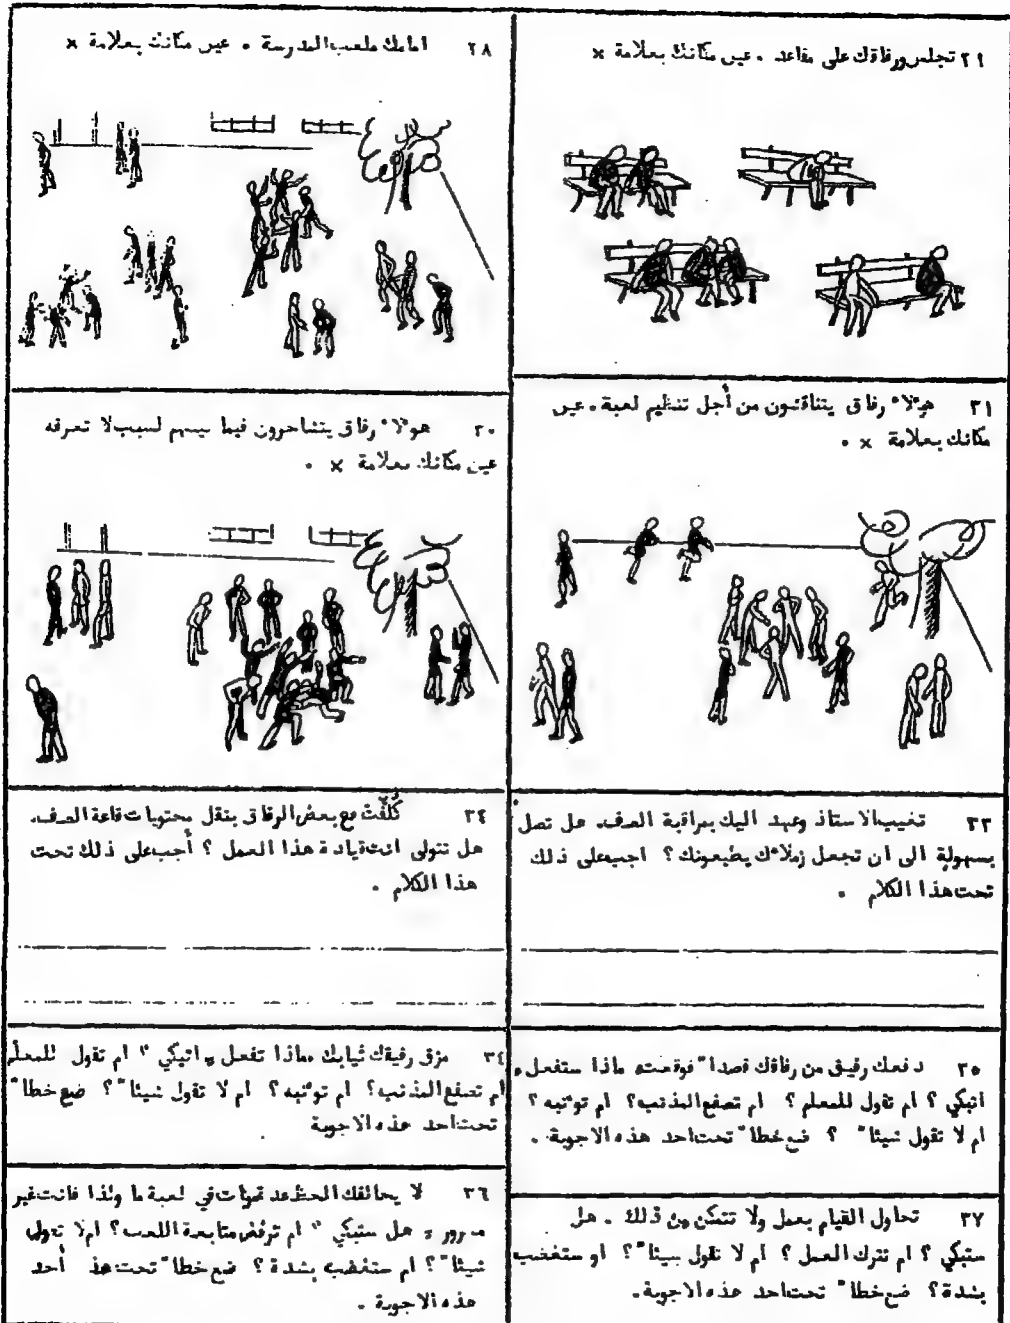 ٢٩ تجلس ورفاقك على مقاعد . عين مكانك بعلامة ×
٢٨ امامك ملعب المدرسة . عين مكانك بعلامة ×
٣١ هؤلاء رفاق يتناقشون من أجل تنظيم لعبة . عين
مكانك بعلامة × .
٣٠ هؤلاء رفاق يتشاجرون فيما بينهم لسبب لا تعرفه
عين مكانك بعلامة × .
٣٣ تغيب الاستاذ وعهد اليك بمراقبة الصف . هل تصل
بسهولة الى ان تجعل زملاءك يطيعونك ؟ اجب على ذلك
تحت هذا الكلام .
٣٤ كُلّفْتَ مع بعض الرفاق بنقل محتويات قاعة الصف .
هل تتولى انت قيادة هذا العمل ؟ أجب على ذلك تحت
هذا الكلام .
٣٥ دفعك رفيق من رفاقك قصدا" فوقعت . ماذا ستفعل ،
اتبكي ؟ ام تقول للمعلم ؟ ام تصفع المذنب ؟ ام توءنبه ؟
ام لا تقول شيئا" ؟ ضع خطا" تحت احد هذه الاجوبة .
٣٤ مزق رفيقك ثيابك ماذا تفعل ، اتبكي ؟ ام تقول للمعلم
ام تصفع المذنب ؟ ام توءنبه ؟ ام لا تقول شيئا" ؟ ضع خطا"
تحت احد هذه الاجوبة
٣٧ تحاول القيام بعمل ولا تتمكن من ذلك . هل
ستبكي ؟ ام تترك العمل ؟ ام لا تقول شيئا" ؟ او ستغضب
بشدة ؟ ضع خطا" تحت احد هذه الاجوبة .
٣٦ لا يحالفك الحظ عد في لعبة ما ولذا فانت غير
مسرور ، هل ستبكي ؟ ام ترفض متابعة اللعب ؟ ام لا تقول
شيئا" ؟ ام ستغضب بشدة ؟ ضع خطا" تحت هذ أحد
هذه الاجوبة .